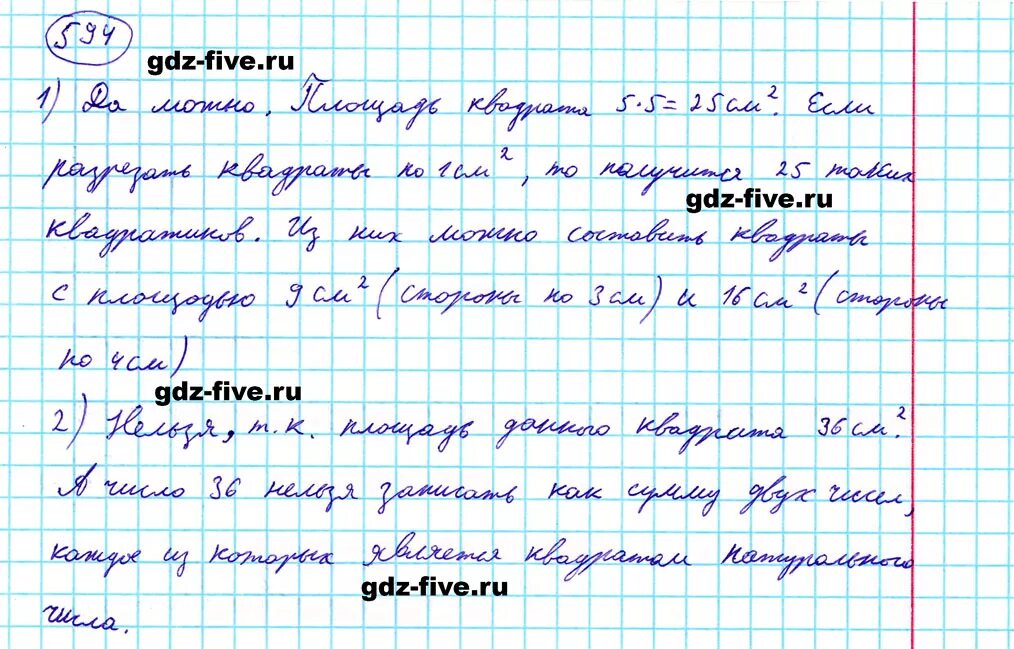 594
gdz-five.ru
1) Да можно. Площадь квадрата 5·5=25см². Если
разрезать квадраты по 1см², то получится 25 таких
gdz-five.ru
квадратиков. Из них можно составить квадраты
с площадью 9см² (стороны по 3см) и 16см² (стороны
по 4см)
gdz-five.ru
2) Нельзя, т.к. площадь данного квадрата 36см².
А число 36 нельзя записать как сумму двух чисел,
каждое из которых является квадратом натурального
gdz-five.ru
числа.